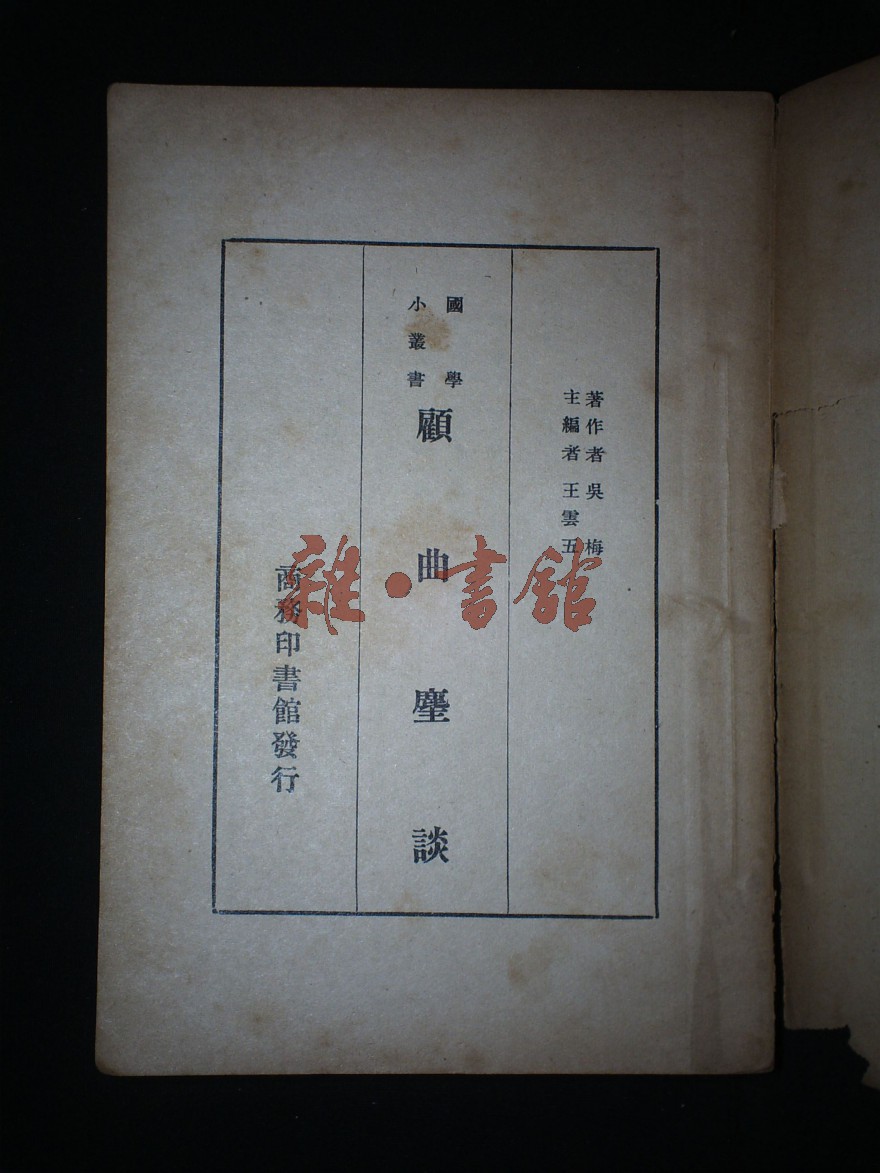 著作者 吳梅
主編者 王雲五
國學
小叢書
顧曲麈談
商務印書館發行
雜·書館